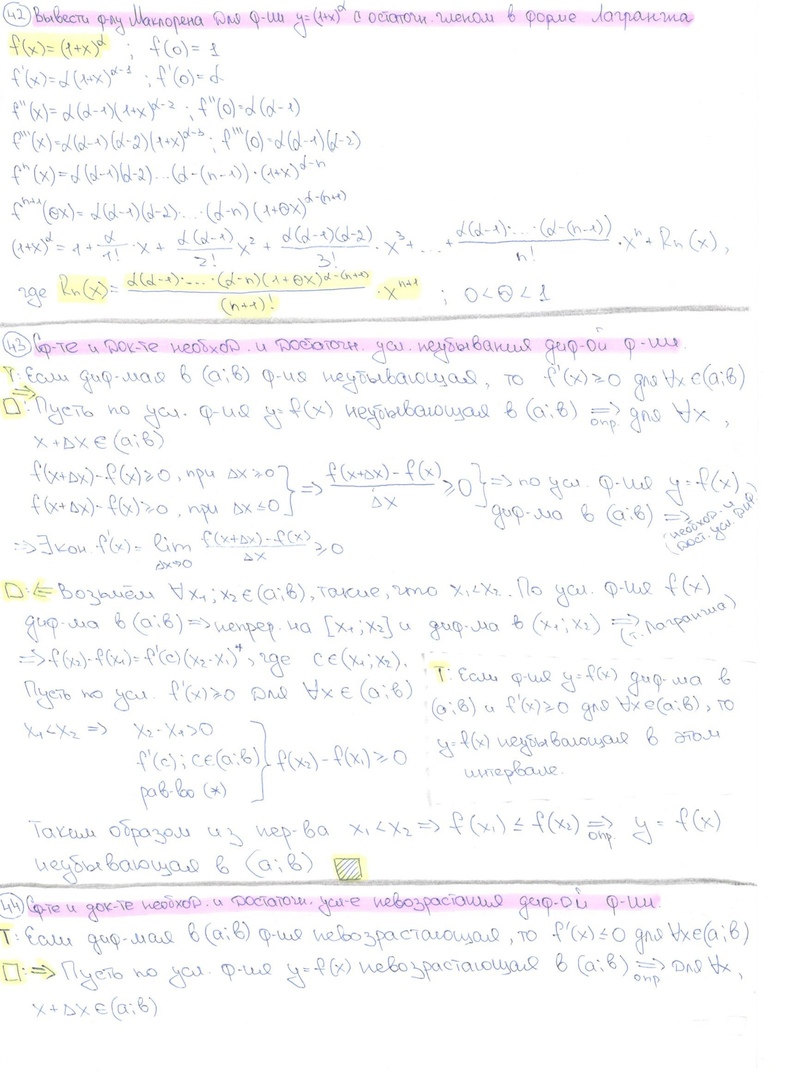 42 Вывести ф-лу Маклорена для ф-ии y=(1+x)^α с остаточн. членом в форме Лагранжа
f(x)=(1+x)^α ; f(0)=1
f'(x)=α(1+x)^(α-1) ; f'(0)=α
f''(x)=α(α-1)(1+x)^(α-2) ; f''(0)=α(α-1)
f'''(x)=α(α-1)(α-2)(1+x)^(α-3) ; f'''(0)=α(α-1)(α-2)
f^n(x)=α(α-1)(α-2)...(α-(n-1))·(1+x)^(α-n)
f^(n+1)(θx)=α(α-1)(α-2)·...·(α-n)(1+θx)^(α-(n+1))
(1+x)^α = 1 + α/1!·x + α(α-1)/2! x² + α(α-1)(α-2)/3!·x³ + ... + α(α-1)·...·(α-(n-1))/n!·x^n + Rn(x),
где Rn(x)= α(α-1)·...·(α-n)(1+θx)^(α-(n+1))/(n+1)!·x^(n+1) ; 0<θ<1
43 Сф-те и док-те необход. и достаточн. усл. неубывания диф-ой ф-ии.
Т: Если диф-мая в (a;b) ф-ия неубывающая, то f'(x)≥0 для ∀x∈(a;b)
⇒
□: Пусть по усл. ф-ия y=f(x) неубывающая в (a;b) ⇒опр. для ∀x,
x+Δx∈(a;b)
f(x+Δx)-f(x)≥0, при Δx≥0
f(x+Δx)-f(x)≥0, при Δx≤0 } ⇒ (f(x+Δx)-f(x))/Δx ≥0 } ⇒ по усл. ф-ия y=f(x)
диф-ма в (a;b) ⇒ необход. и дост. усл. диф.
⇒ ∃ кон. f'(x)= lim Δx→0 (f(x+Δx)-f(x))/Δx ≥0
□: ⇐ Возьмём ∀x₁;x₂∈(a;b), такие, что x₁<x₂. По усл. ф-ия f(x)
диф-ма в (a;b) ⇒ непрер. на [x₁;x₂] и диф-ма в (x₁;x₂) ⇒ (т. Лагранжа)
⇒ f(x₂)-f(x₁)=f'(c)(x₂-x₁)*, где c∈(x₁;x₂).
Пусть по усл. f'(x)≥0 для ∀x∈(a;b)
x₁<x₂ ⇒ x₂-x₁>0
f'(c); c∈(a;b) } f(x₂)-f(x₁)≥0
рав-во (*)
Т: Если ф-ия y=f(x) диф-ма в
(a;b) и f'(x)≥0 для ∀x∈(a;b), то
y=f(x) неубывающая в этом
интервале.
Таким образом из нер-ва x₁<x₂ ⇒ f(x₁)≤f(x₂) ⇒опр. y=f(x)
неубывающая в (a;b)
44 Сф-те и док-те необход. и достаточн. усл-е невозрастания диф-ой ф-ии.
Т: Если диф-мая в (a;b) ф-ия невозрастающая, то f'(x)≤0 для ∀x∈(a;b)
□: ⇒ Пусть по усл. ф-ия y=f(x) невозрастающая в (a;b) ⇒опр для ∀x,
x+Δx∈(a;b)